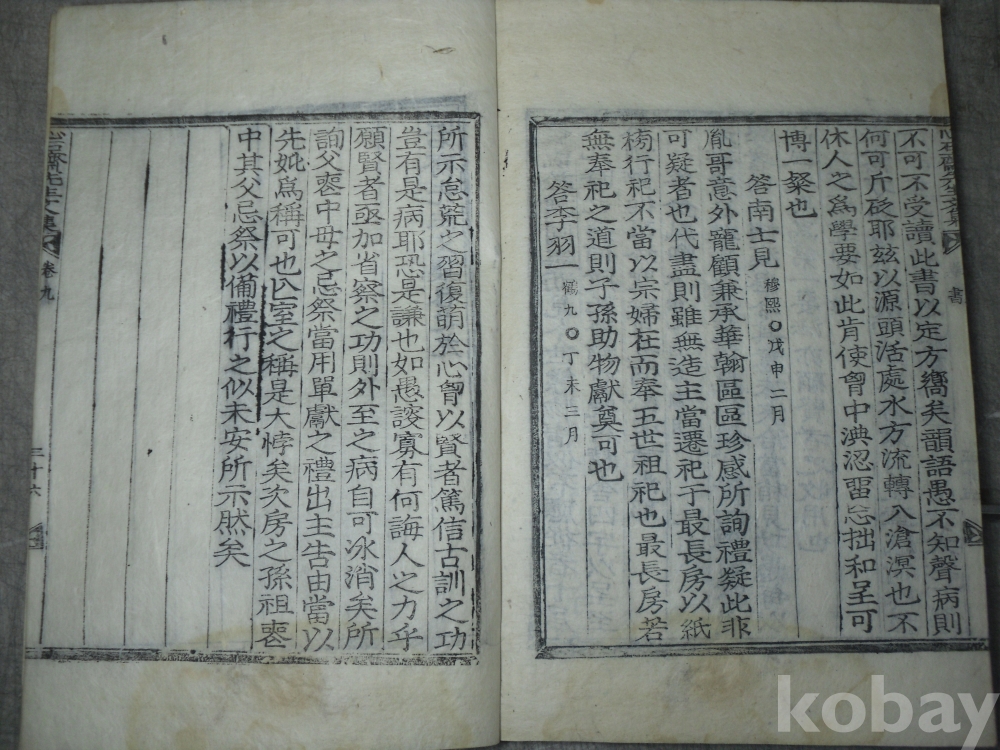 不可不受讀此書以定方嚮矣韻語愚不知聲病則
何可斤砭耶玆以源頭活處水方流轉入滄溟也不
休人之爲學要如此肯使胷中淟涊習忘拙和呈可
博一粲也
答南士見 穆熙○戊申二月
胤哥意外寵顧兼承華翰區區珍感所詢禮疑此非
可疑者也代盡則雖無造主當遷祀于最長房以紙
牓行祀不當以宗婦在而奉五世祖祀也最長房若
無奉祀之道則子孫助物獻奠可也
答李羽一 鶴九○丁未三月
書
所示怠荒之習復萌於心胷以賢者篤信古訓之功
豈有是病耶恐是謙也如愚謏寡有何誨人之力乎
願賢者亟加省察之功則外至之病自可氷消矣所
詢父喪中母之忌祭當用單獻之禮出主告由當以
先妣爲稱可也亾室之稱是大悖矣次房之孫祖喪
中其父忌祭以備禮行之似未安所示然矣
卷九
二十六
kobay